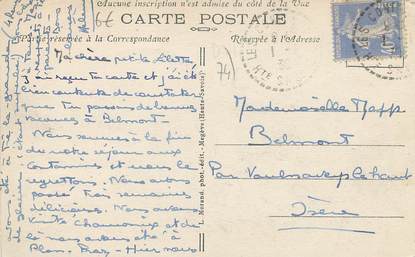 Aucune inscription n'est admise du côté de la Vue
6€
CARTE POSTALE
Partie réservée à la Correspondance
Réservée à l'Adresse
74
Ma chère petite
j'ai reçu ta carte et j'ai été
bien contente de constater
que tu passes de bonnes
vacances à Belmont.
Nous sommes à la fin
de notre séjour aux
Contamines et nous le
regrettons. Nous avons
passé trois semaines
délicieuses. Nous avons
visité Chamonix et de
là nous avons été à
Plan Praz - Hier nous
avons été à
Morand, phot.-édit. - Megève (Haute-Savoie)
Mademoiselle Mapp
Belmont
Par
Isère